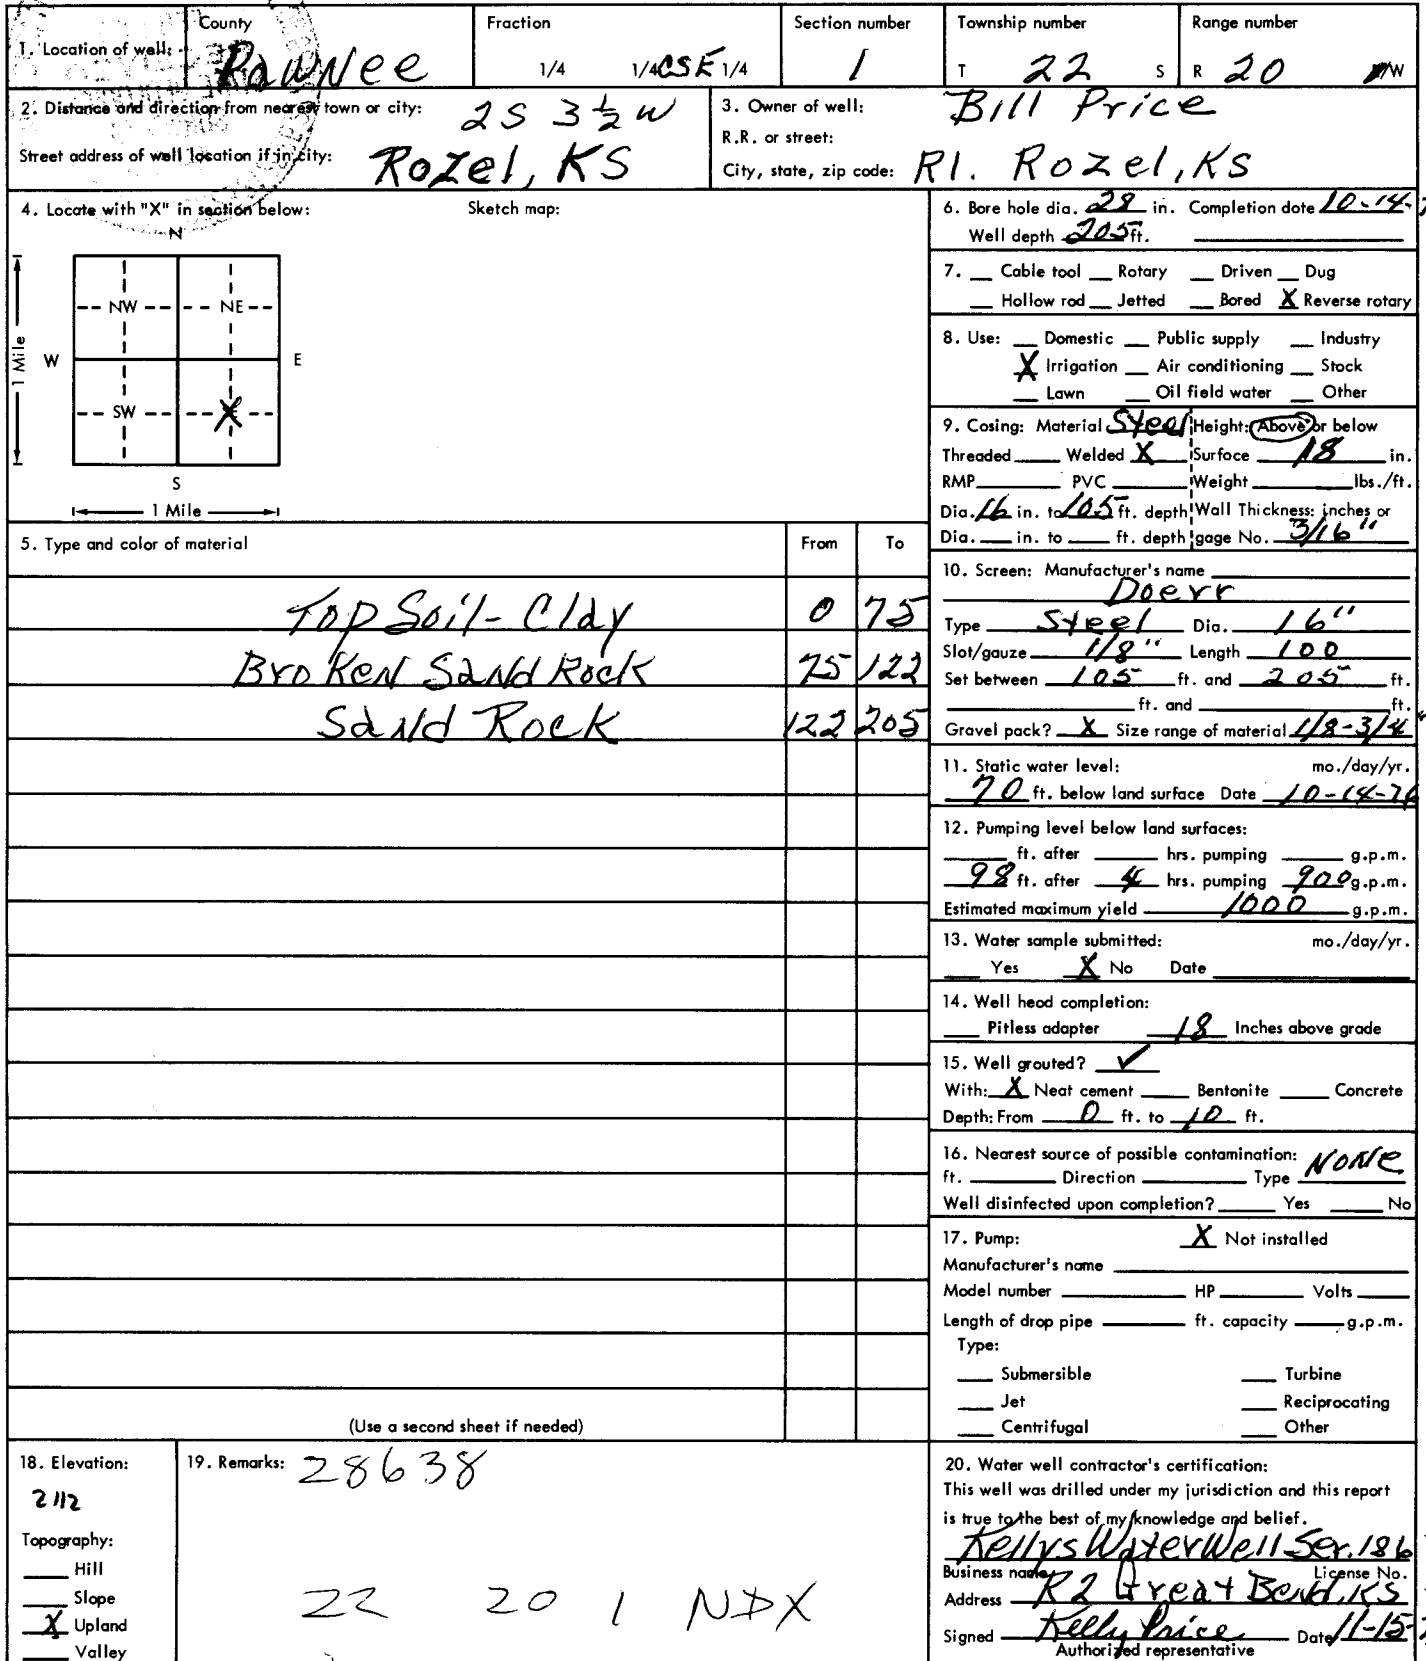 County Fraction Section number Township number Range number
1. Location of well: Pawnee 1/4 1/4 CSE 1/4 1 T 22 S R 20 W
2. Distance and direction from nearest town or city: 2S 3 1/2 W
Street address of well location if in city: Rozel, KS
3. Owner of well: Bill Price
R.R. or street:
City, state, zip code: R1. Rozel, KS
4. Locate with "X" in section below: Sketch map:
N
NW NE
W E
1 Mile
SW X
S
1 Mile
5. Type and color of material From To
Top Soil - Clay 0 75
Broken Sand Rock 75 122
Sand Rock 122 205
(Use a second sheet if needed)
6. Bore hole dia. 28 in. Completion date 10-14-
Well depth 205 ft.
7. Cable tool Rotary Driven Dug
Hollow rod Jetted Bored X Reverse rotary
8. Use: Domestic Public supply Industry
X Irrigation Air conditioning Stock
Lawn Oil field water Other
9. Cosing: Material Steel Height: Above or below
Threaded Welded X Surface 18 in.
RMP PVC Weight lbs./ft.
Dia. 16 in. to 105 ft. depth Wall Thickness: inches or
Dia. in. to ft. depth gage No. 3/16"
10. Screen: Manufacturer's name
Doerr
Type Steel Dia. 16"
Slot/gauze 1/8" Length 100
Set between 105 ft. and 205 ft.
ft. and ft.
Gravel pack? X Size range of material 1/8-3/4"
11. Static water level: mo./day/yr.
70 ft. below land surface Date 10-14-76
12. Pumping level below land surfaces:
ft. after hrs. pumping g.p.m.
98 ft. after 4 hrs. pumping 900 g.p.m.
Estimated maximum yield 1000 g.p.m.
13. Water sample submitted: mo./day/yr.
Yes X No Date
14. Well head completion:
Pitless adapter 18 Inches above grade
15. Well grouted? ✓
With: X Neat cement Bentonite Concrete
Depth: From 0 ft. to 10 ft.
16. Nearest source of possible contamination:
ft. Direction Type NONE
Well disinfected upon completion? Yes No
17. Pump: X Not installed
Manufacturer's name
Model number HP Volts
Length of drop pipe ft. capacity g.p.m.
Type:
Submersible Turbine
Jet Reciprocating
Centrifugal Other
18. Elevation:
2112
Topography:
Hill
Slope
X Upland
Valley
19. Remarks: 28638
22 20 1 NDX
20. Water well contractor's certification:
This well was drilled under my jurisdiction and this report
is true to the best of my knowledge and belief.
Kellys Water Well Ser. 186
Business name License No.
Address R2 Great Bend, KS
Signed Kelly Price Date 11-15-
Authorized representative